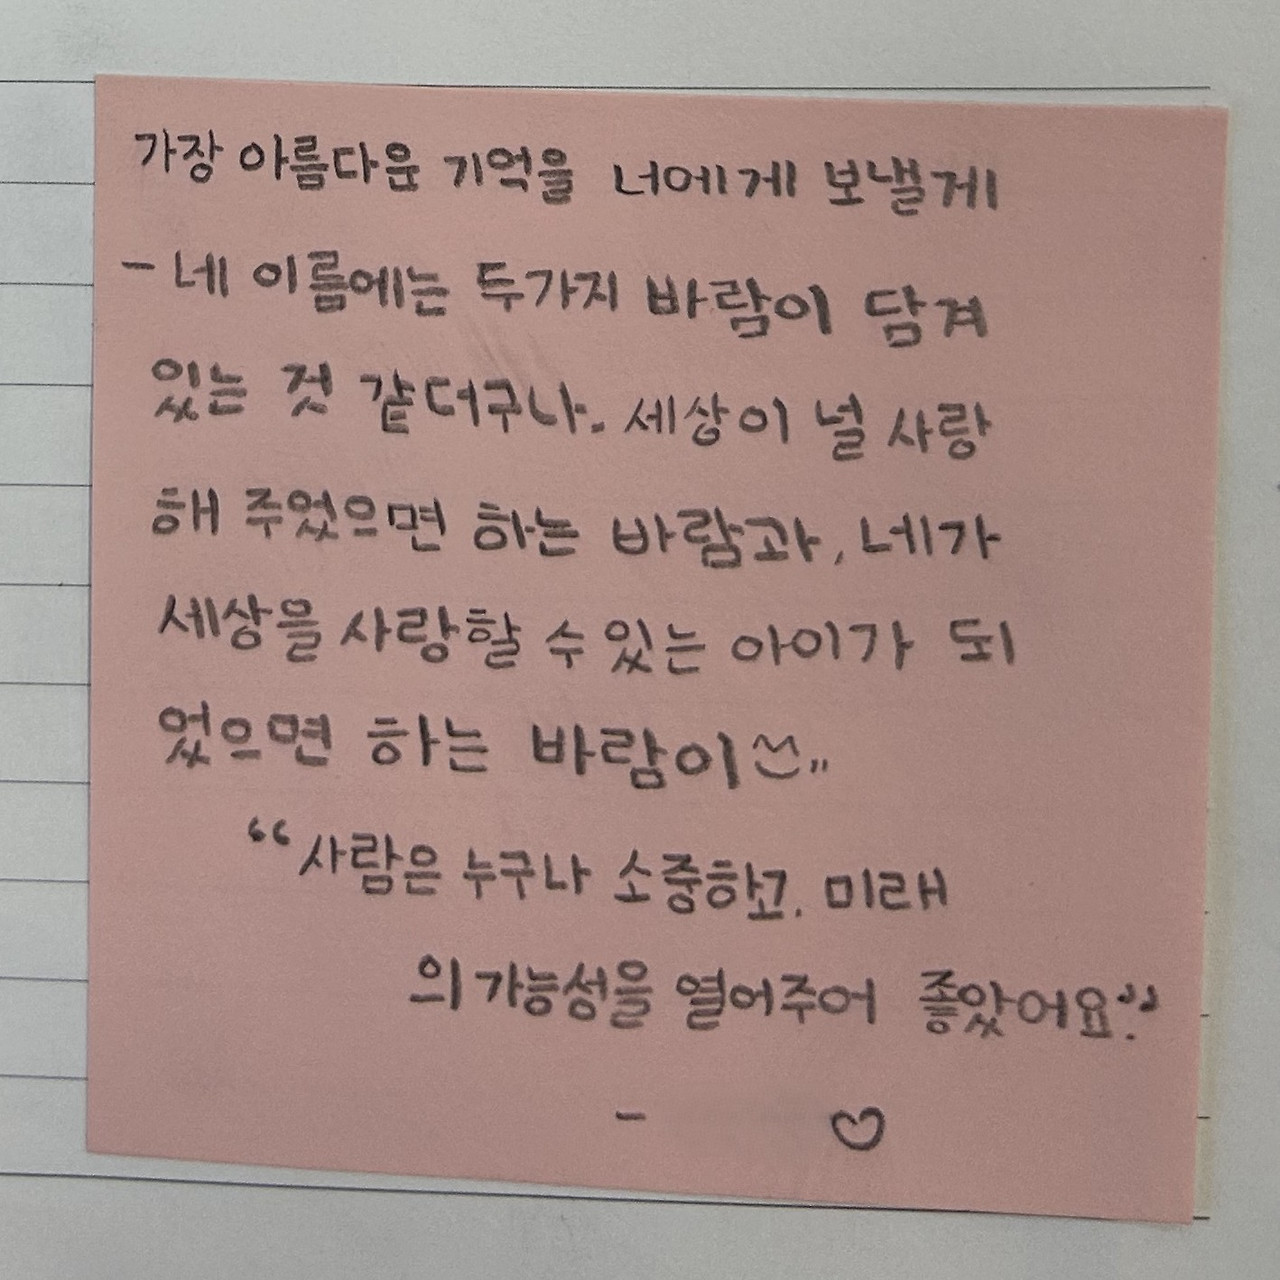 가장 아름다운 기억을 너에게 보낼게
- 네 이름에는 두가지 바람이 담겨
있는 것 같더구나. 세상이 널 사랑
해 주었으면 하는 바람과, 네가
세상을 사랑할 수 있는 아이가 되
었으면 하는 바람이 ^^,,
“사람은 누구나 소중하고, 미래
의 가능성을 열어주어 좋았어요.”
- ♡